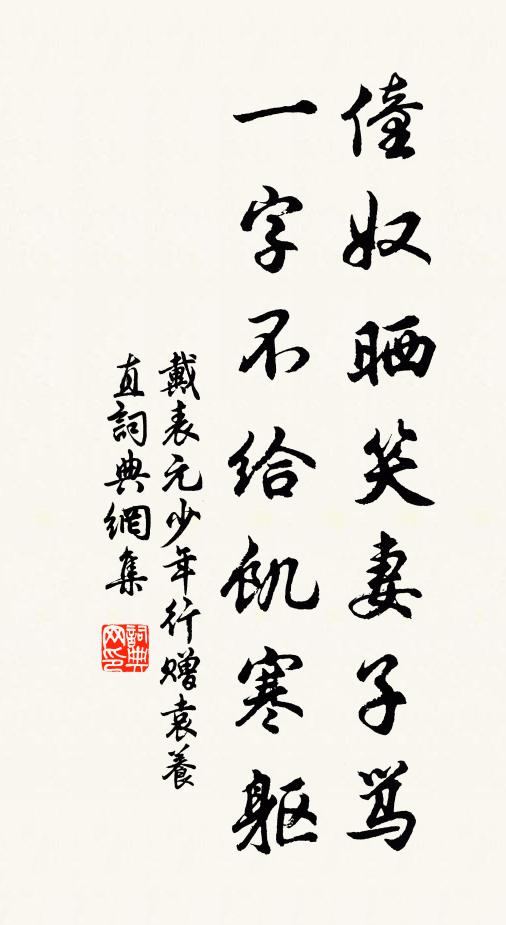 僮奴晒笑妻子骂
一字不给飢寒躯
戴表元少年行赠袁養
直詞典網集
詞典网印